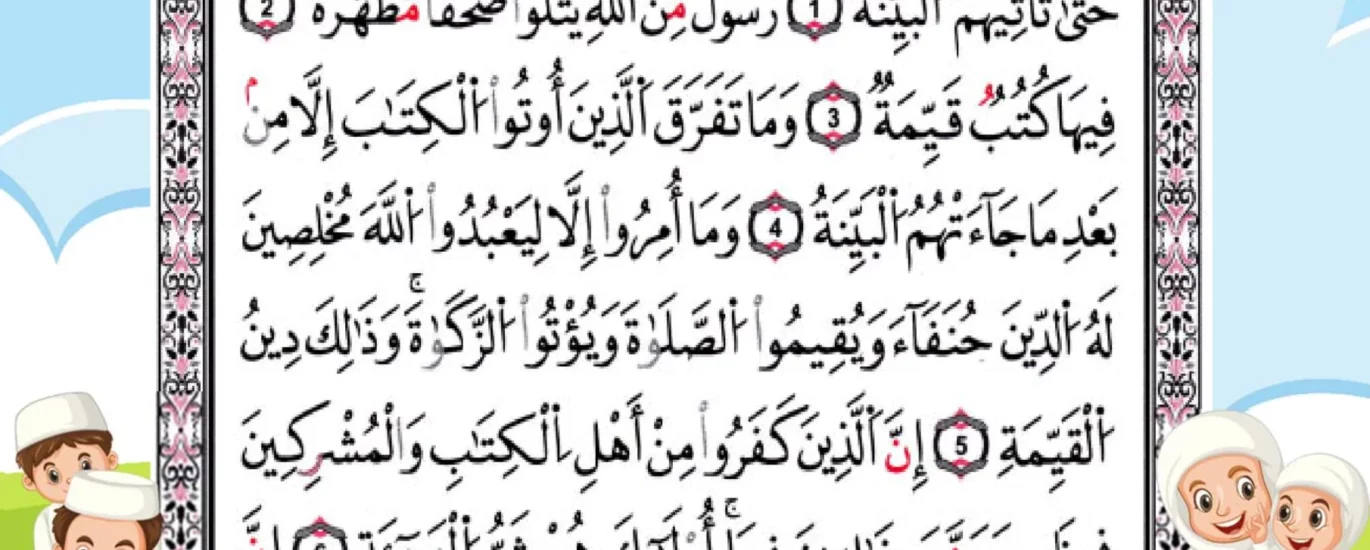 حَتَّىٰ تَأْتِيَهُمُ ٱلْبَيِّنَةُ 1 رَسُولٌ مِّنَ ٱللَّهِ يَتْلُوا۟ صُحُفًا مُّطَهَّرَةً 2
فِيهَا كُتُبٌ قَيِّمَةٌ 3 وَمَا تَفَرَّقَ ٱلَّذِينَ أُوتُوا۟ ٱلْكِتَٰبَ إِلَّا مِنۢ
بَعْدِ مَا جَآءَتْهُمُ ٱلْبَيِّنَةُ 4 وَمَآ أُمِرُوٓا۟ إِلَّا لِيَعْبُدُوا۟ ٱللَّهَ مُخْلِصِينَ
لَهُ ٱلدِّينَ حُنَفَآءَ وَيُقِيمُوا۟ ٱلصَّلَوٰةَ وَيُؤْتُوا۟ ٱلزَّكَوٰةَ ۚ وَذَٰلِكَ دِينُ
ٱلْقَيِّمَةِ 5 إِنَّ ٱلَّذِينَ كَفَرُوا۟ مِنْ أَهْلِ ٱلْكِتَٰبِ وَٱلْمُشْرِكِينَ